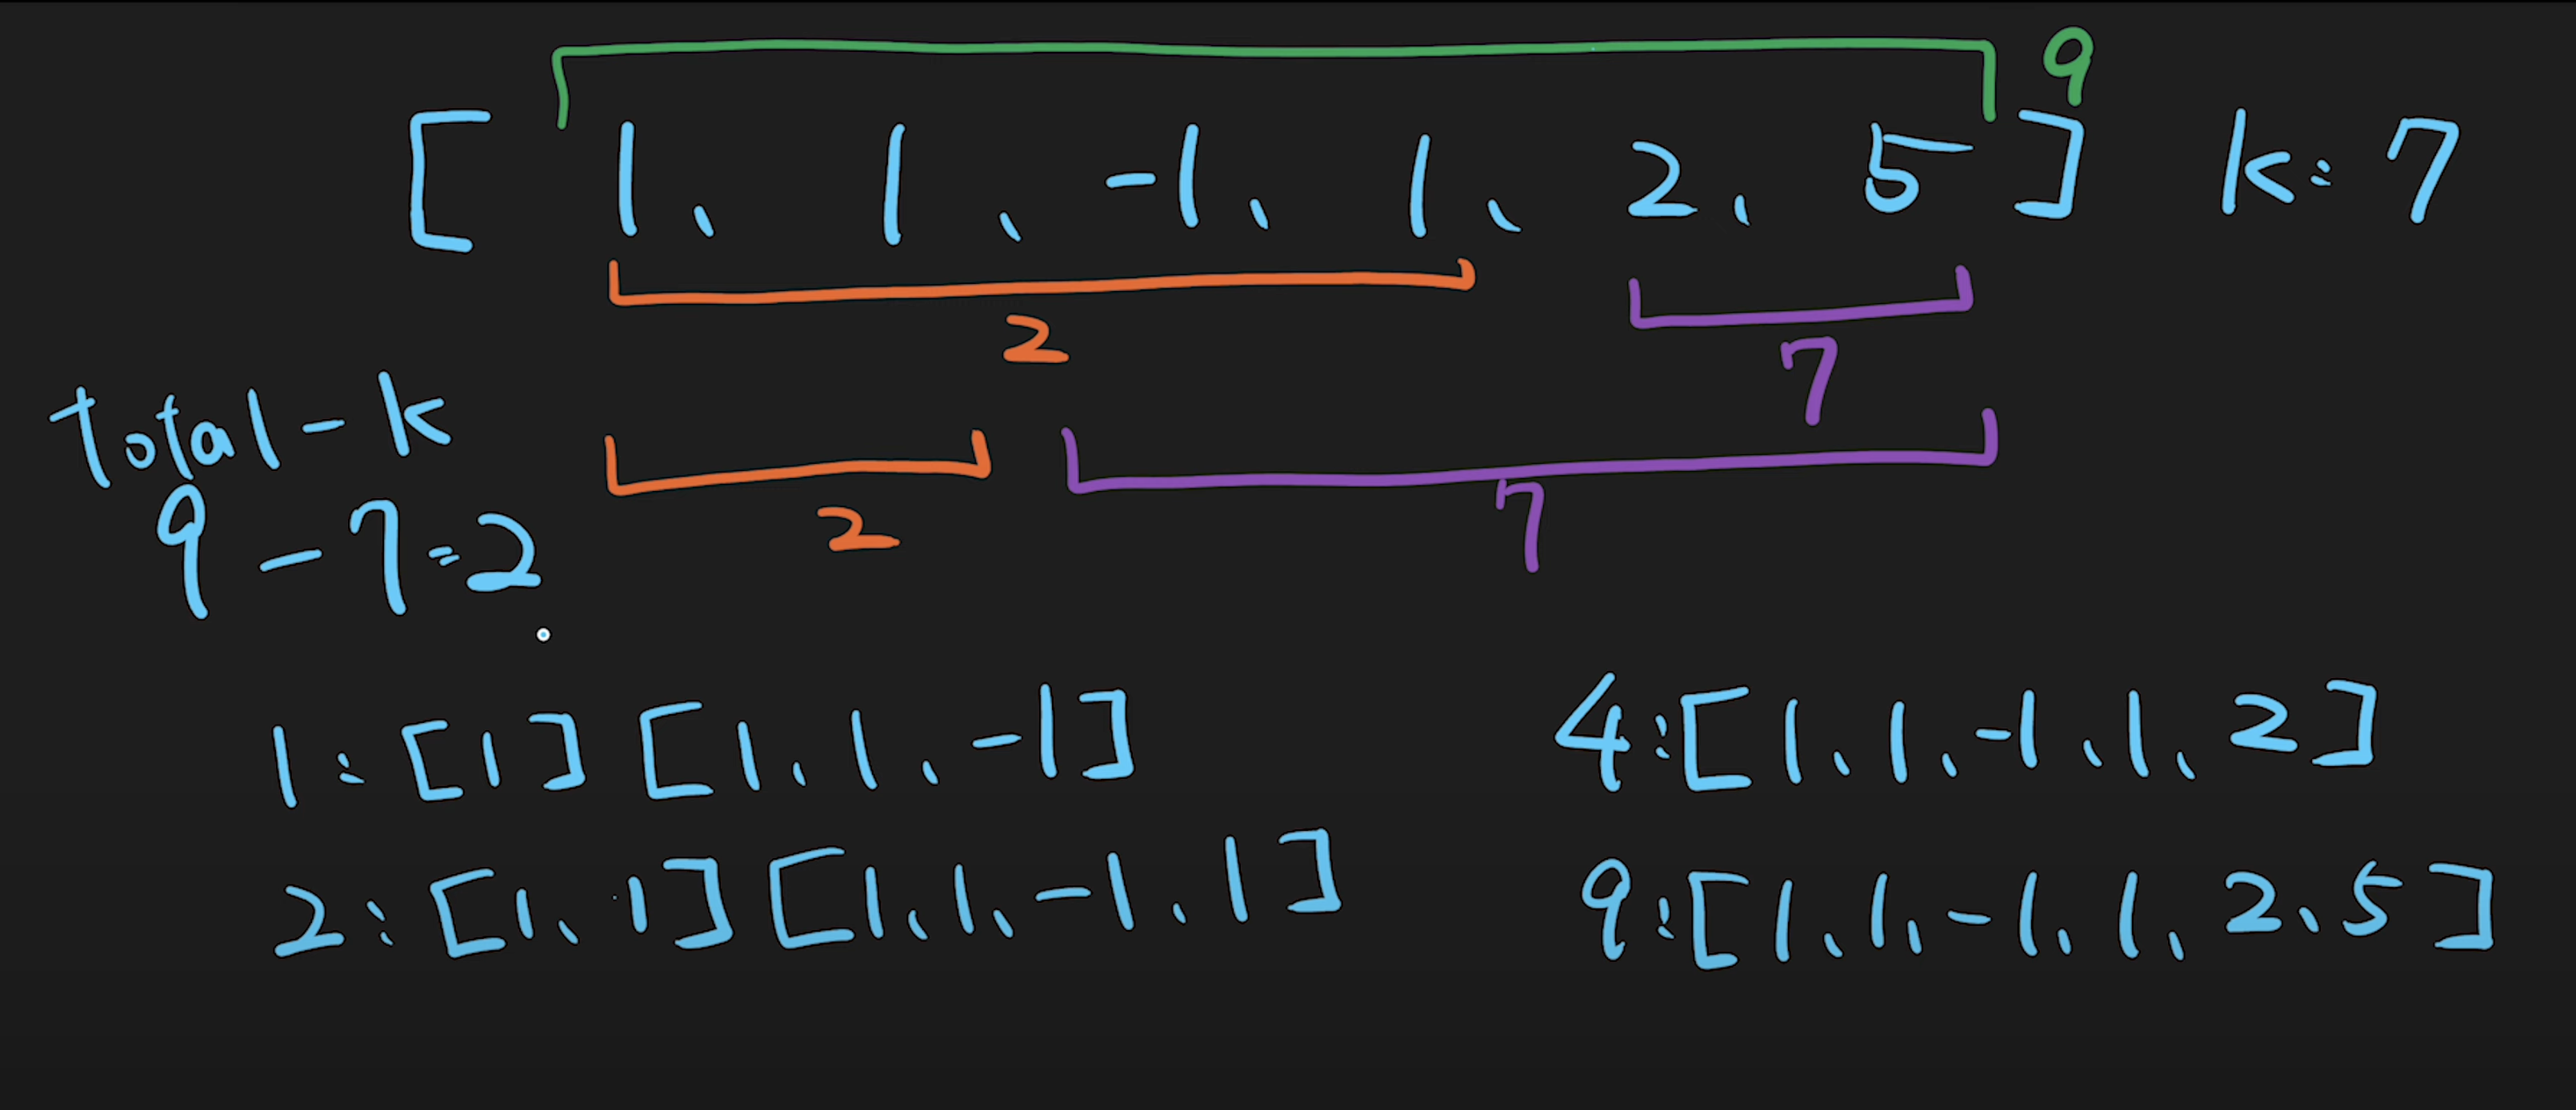 9
[ 1, 1, -1, 1, 2, 5 ] k=7
2 7
total - k
2 7
9 - 7 = 2
1: [1] [1, 1, -1]
4: [1, 1, -1, 1, 2]
2: [1, 1] [1, 1, -1, 1]
9: [1, 1, -1, 1, 2, 5]